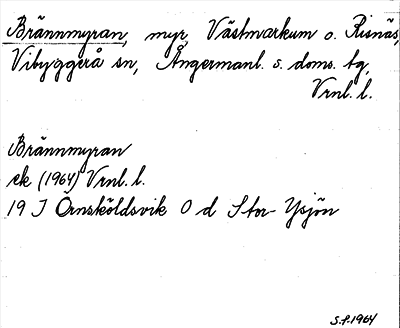 Brännmyran, myr, Västmarkum o. Risnäs,
Vibyggerå sn, Ångermanl. s. doms. tg,
Vrnl. l.
Brännmyran
ek (1964) Vrnl. l.
19 I Örnsköldsvik O d Stor-Ysjön
S.f.1964